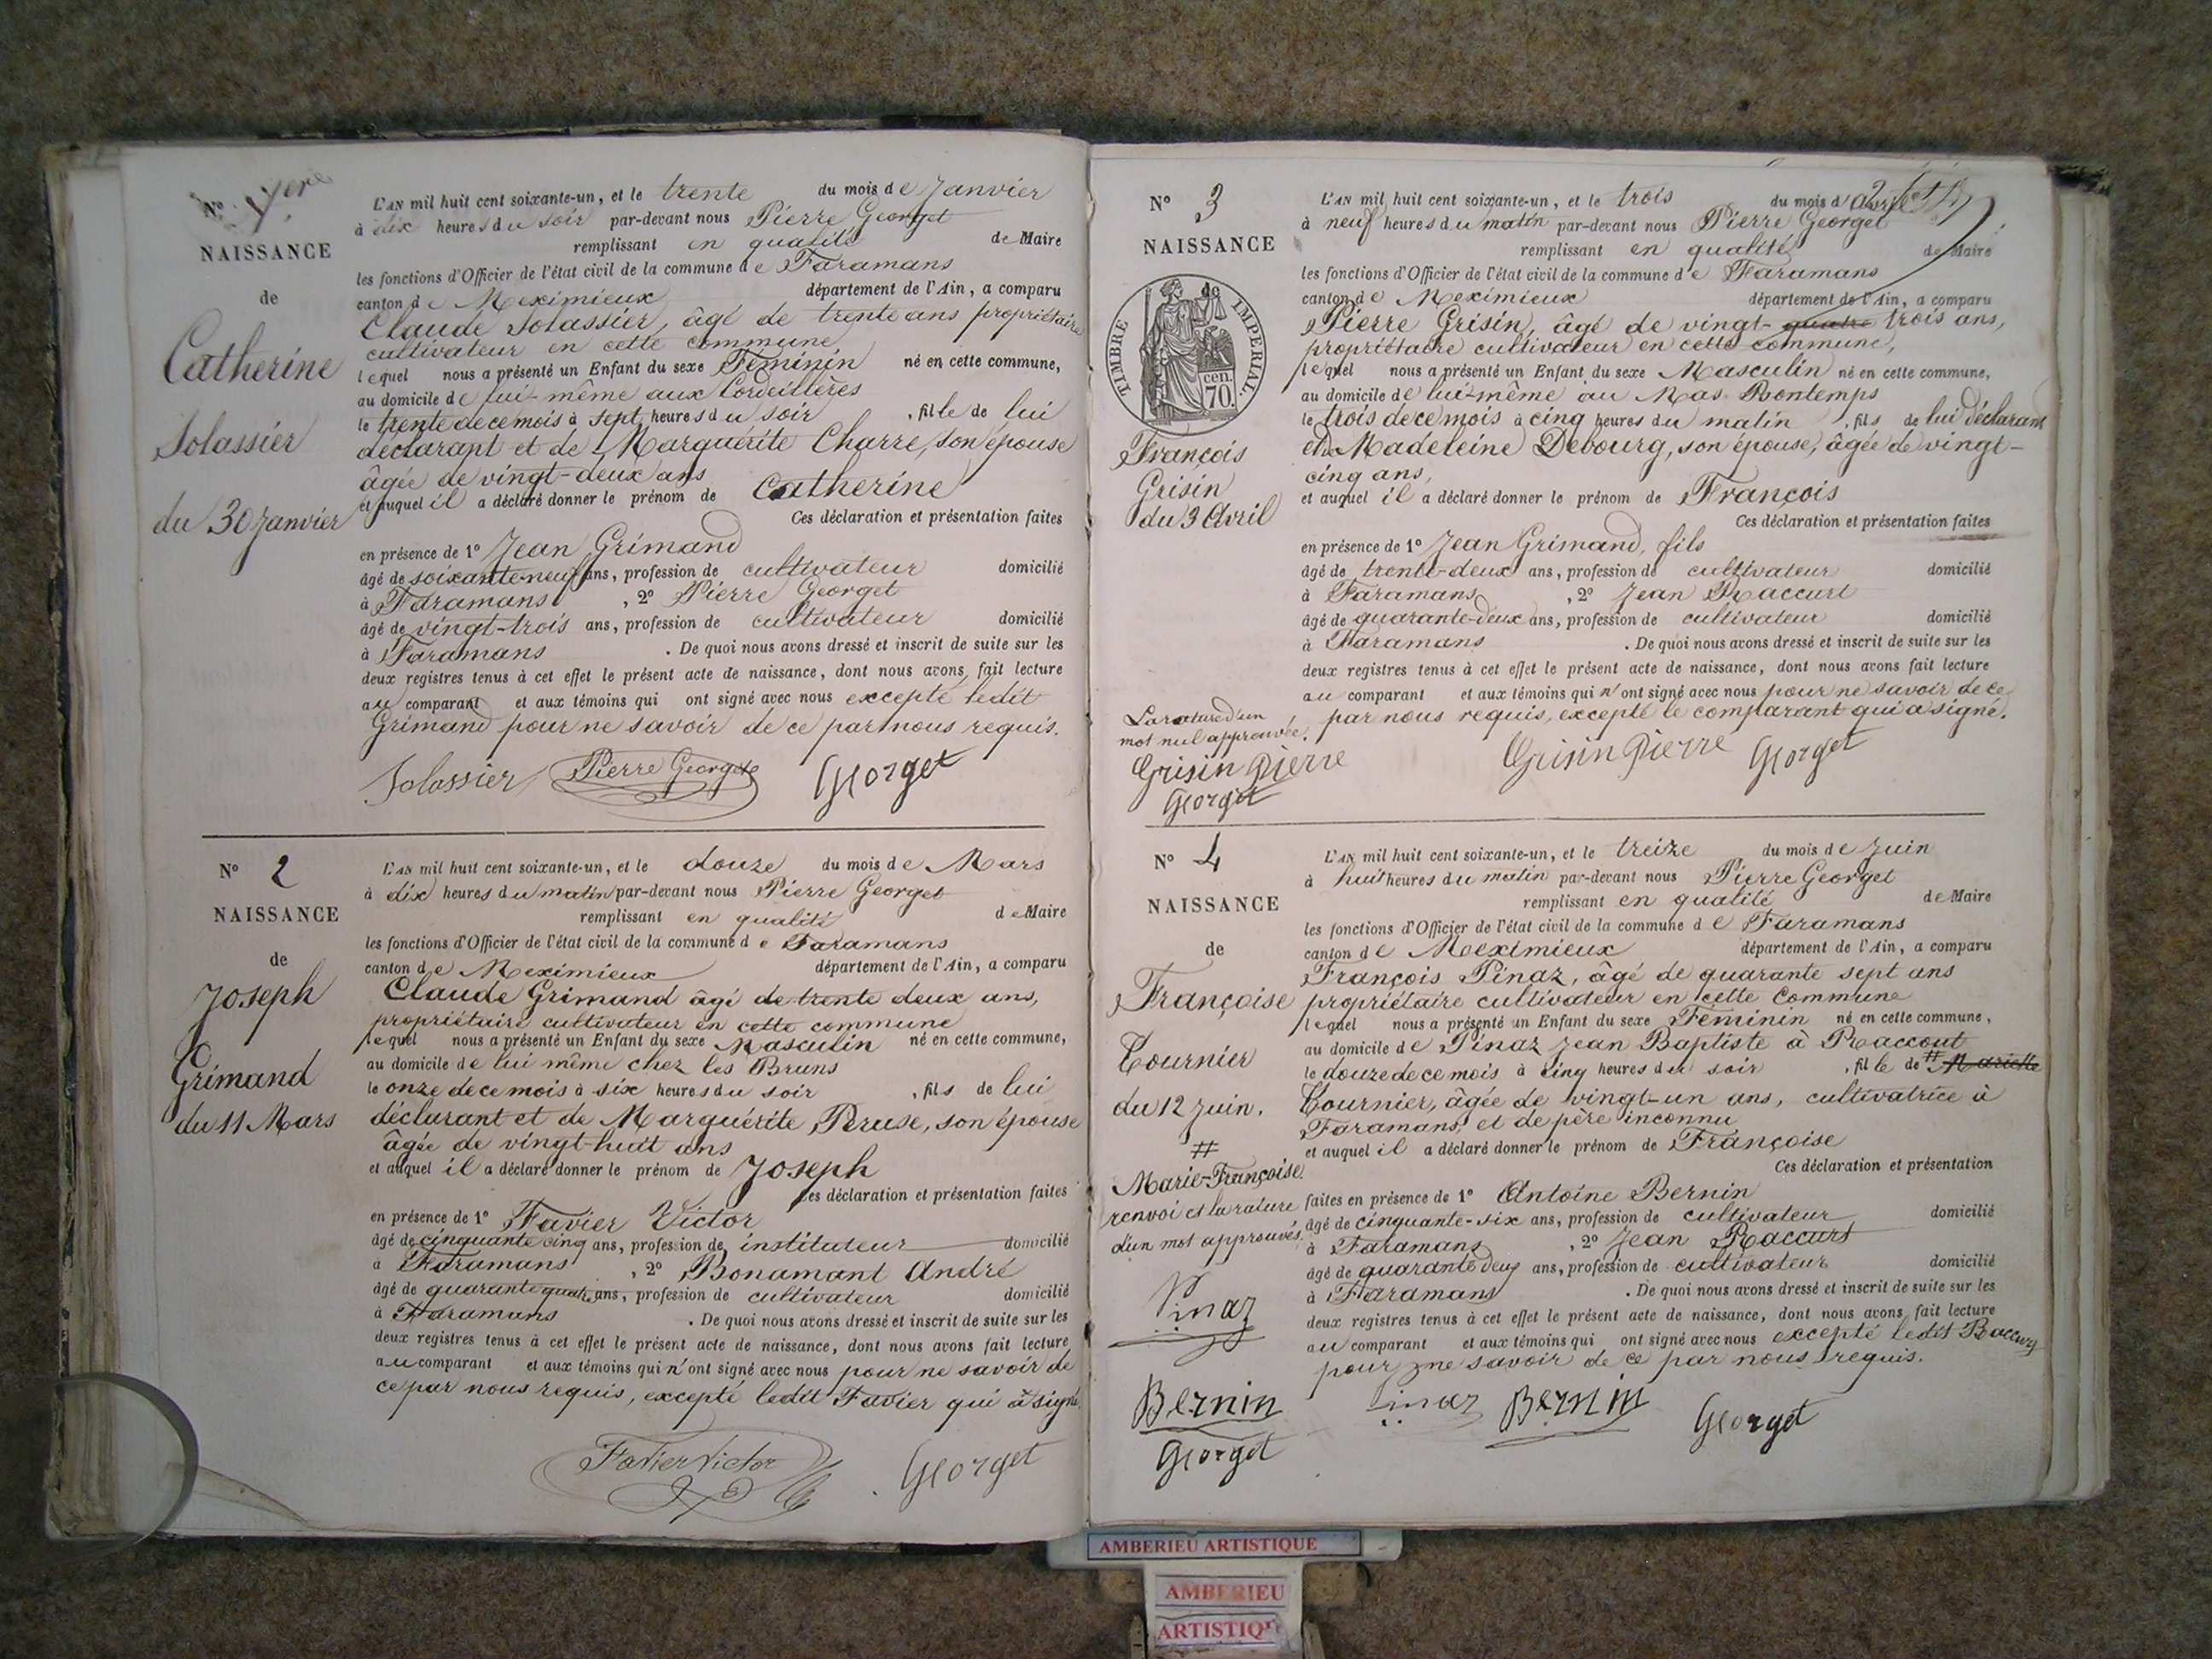 N° 1ere
NAISSANCE
de
Catherine
Solassier
du 30 Janvier
L'AN mil huit cent soixante-un, et le trente du mois de Janvier
à dix heures du soir par-devant nous Pierre Georget
remplissant en qualité de Maire
les fonctions d'Officier de l'état civil de la commune de Faramans
canton de Meximieux département de l'Ain, a comparu
Claude Solassier, âgé de trente ans propriétaire
cultivateur en cette commune
lequel nous a présenté un Enfant du sexe Féminin né en cette commune,
au domicile de lui-même aux Cordeillères
le trente de ce mois à sept heures du soir , fille de lui
déclarant et de Marguérite Charre, son épouse
âgée de vingt-deux ans
et auquel il a déclaré donner le prénom de Catherine
Ces déclaration et présentation faites
en présence de 1° Jean Grimand
âgé de soixante-neuf ans, profession de cultivateur domicilié
à Faramans , 2° Pierre Georget
âgé de vingt-trois ans, profession de cultivateur domicilié
à Faramans . De quoi nous avons dressé et inscrit de suite sur les
deux registres tenus à cet effet le présent acte de naissance, dont nous avons fait lecture
au comparant et aux témoins qui ont signé avec nous excepté ledit
Grimand pour ne savoir de ce par nous requis.
Solassier Pierre Georget Georget
N° 2
NAISSANCE
de
Joseph
Grimand
du 11 Mars
L'AN mil huit cent soixante-un, et le douze du mois de Mars
à dix heures du matin par-devant nous Pierre Georget
remplissant en qualité de Maire
les fonctions d'Officier de l'état civil de la commune de Faramans
canton de Meximieux département de l'Ain, a comparu
Claude Grimand âgé de trente deux ans,
propriétaire cultivateur en cette commune
lequel nous a présenté un Enfant du sexe Masculin né en cette commune,
au domicile de lui même chez les Bruns
le onze de ce mois à six heures du soir , fils de lui
déclarant et de Marguérite Peruse, son épouse
âgée de vingt-huit ans
et auquel il a déclaré donner le prénom de Joseph
Ces déclaration et présentation faites
en présence de 1° Favier Victor
âgé de cinquante cinq ans, profession de instituteur domicilié
à Faramans , 2° Bonamant André
âgé de quarante quatre ans, profession de cultivateur domicilié
à Faramans . De quoi nous avons dressé et inscrit de suite sur les
deux registres tenus à cet effet le présent acte de naissance, dont nous avons fait lecture
au comparant et aux témoins qui n'ont signé avec nous pour ne savoir de
ce par nous requis, excepté ledit Favier qui a signé.
Favier Victor Georget
N° 3
NAISSANCE
de
TIMBRE IMPERIAL.
70. cen.
François
Grisin
du 3 Avril
L'AN mil huit cent soixante-un, et le trois du mois d'avril
à neuf heures du matin par-devant nous Pierre Georget
remplissant en qualité de Maire
les fonctions d'Officier de l'état civil de la commune de Faramans
canton de Meximieux département de l'Ain, a comparu
Pierre Grisin, âgé de vingt-quatre trois ans,
propriétaire cultivateur en cette commune,
lequel nous a présenté un Enfant du sexe Masculin né en cette commune,
au domicile de lui-même au Mas Bontemps
le trois de ce mois à cinq heures du matin , fils de lui déclarant
et de Madeleine Debourg, son épouse, âgée de vingt-
cinq ans,
et auquel il a déclaré donner le prénom de François
Ces déclaration et présentation faites
en présence de 1° Jean Grimand, fils
âgé de trente-deux ans, profession de cultivateur domicilié
à Faramans , 2° Jean Raccurt
âgé de quarante-deux ans, profession de cultivateur domicilié
à Faramans . De quoi nous avons dressé et inscrit de suite sur les
deux registres tenus à cet effet le présent acte de naissance, dont nous avons fait lecture
au comparant et aux témoins qui n'ont signé avec nous pour ne savoir de ce
par nous requis, excepté le comparant qui a signé.
La rature d'un
mot nul approuvée.
Grisin Pierre
Georget
Grisin Pierre Georget
N° 4
NAISSANCE
de
Françoise
Tournier
du 12 Juin.
#
Marie-Françoise
renvoi et la rature
d'un mot approuvés.
Pinaz
Bernin
Georget
L'AN mil huit cent soixante-un, et le treize du mois de Juin
à huit heures du matin par-devant nous Pierre Georget
remplissant en qualité de Maire
les fonctions d'Officier de l'état civil de la commune de Faramans
canton de Meximieux département de l'Ain, a comparu
François Pinaz, âgé de quarante sept ans
propriétaire cultivateur en cette Commune
lequel nous a présenté un Enfant du sexe Féminin né en cette commune,
au domicile de Pinaz Jean Baptiste à Raccout
le douze de ce mois à cinq heures du soir , fille de #
Tournier, âgée de vingt-un ans, cultivatrice à
Faramans, et de père inconnu
et auquel il a déclaré donner le prénom de Françoise
Ces déclaration et présentation
faites en présence de 1° Antoine Bernin
âgé de cinquante-six ans, profession de cultivateur domicilié
à Faramans , 2° Jean Raccurt
âgé de quarante deux ans, profession de cultivateur domicilié
à Faramans . De quoi nous avons dressé et inscrit de suite sur les
deux registres tenus à cet effet le présent acte de naissance, dont nous avons fait lecture
au comparant et aux témoins qui ont signé avec nous excepté ledit Raccurt
pour ne savoir de ce par nous requis.
Pinaz Bernin Georget
AMBERIEU ARTISTIQUE
AMBERIEU
ARTISTIQU